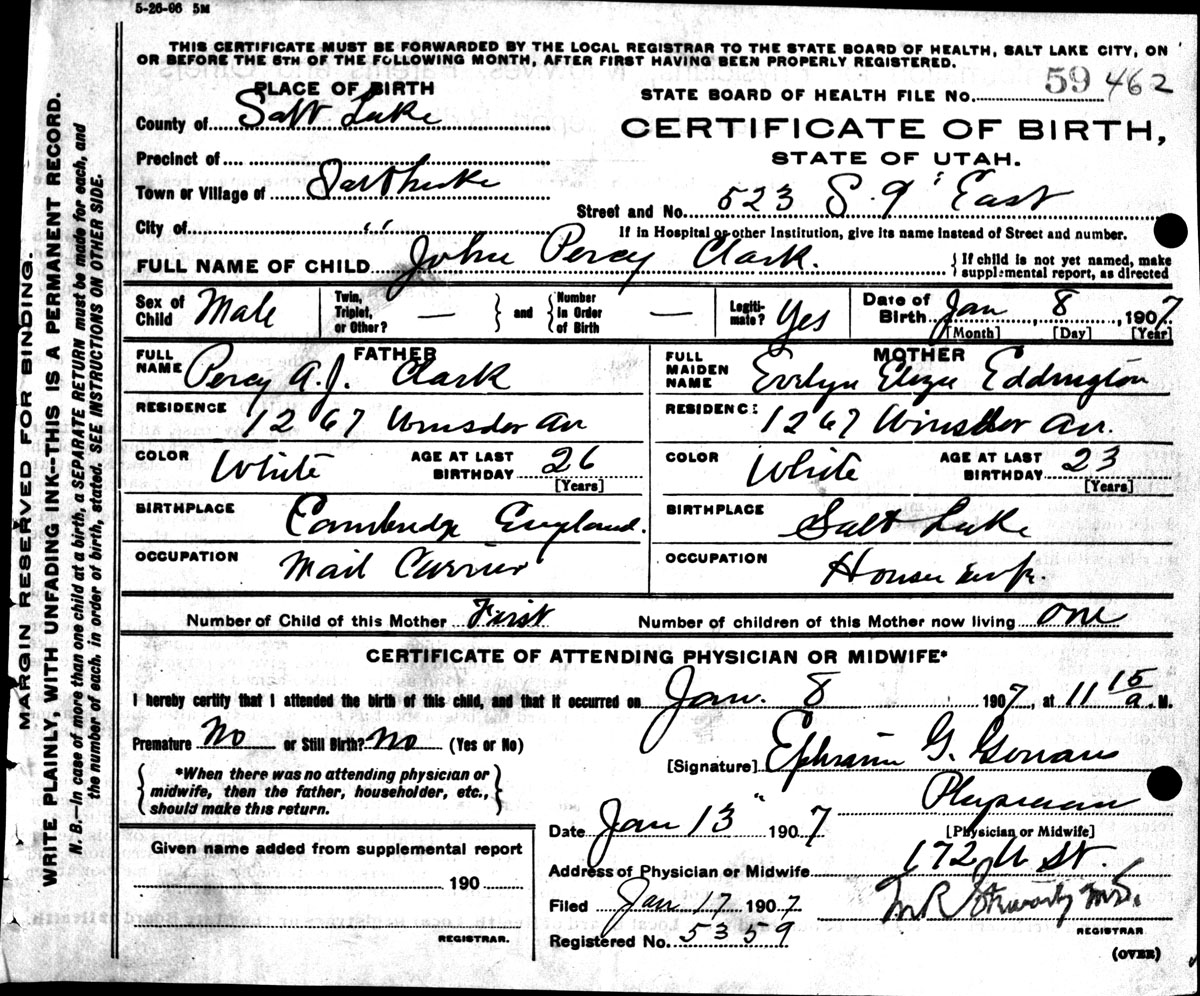 5-26-06 5M
THIS CERTIFICATE MUST BE FORWARDED BY THE LOCAL REGISTRAR TO THE STATE BOARD OF HEALTH, SALT LAKE CITY, ON
OR BEFORE THE 5TH OF THE FOLLOWING MONTH, AFTER FIRST HAVING BEEN PROPERLY REGISTERED.
PLACE OF BIRTH
STATE BOARD OF HEALTH FILE No. 59 462
County of Salt Lake
CERTIFICATE OF BIRTH,
STATE OF UTAH.
Precinct of
Town or Village of Salt Lake
Street and No. 523 S. 9" East
City of " "
If in Hospital or other Institution, give its name instead of Street and number.
FULL NAME OF CHILD John Percy Clark.
{If child is not yet named, make supplemental report, as directed
Sex of Child Male
Twin, Triplet, or Other? —
} and {
Number in Order of Birth —
Legitimate? Yes
Date of Birth Jan 8, 1907
[Month] [Day] [Year]
FATHER
FULL NAME Percy A. J. Clark
RESIDENCE 1267 Windsor Av
COLOR White
AGE AT LAST BIRTHDAY 26
[Years]
BIRTHPLACE Cambridge England.
OCCUPATION Mail Carrier
MOTHER
FULL MAIDEN NAME Evelyn Eliza Eddington
RESIDENCE 1267 Windsor Av.
COLOR White
AGE AT LAST BIRTHDAY 23
[Years]
BIRTHPLACE Salt Lake
OCCUPATION Housewife.
Number of Child of this Mother First
Number of children of this Mother now living one
CERTIFICATE OF ATTENDING PHYSICIAN OR MIDWIFE*
I hereby certify that I attended the birth of this child, and that it occurred on Jan. 8 1907, at 11 15 a. M.
Premature No or Still Birth? No (Yes or No)
[Signature] Ephraim G. Gowans
{ *When there was no attending physician or
midwife, then the father, householder, etc.,
should make this return. }
Physician
[Physician or Midwife]
Date Jan 13" 1907
Address of Physician or Midwife 172 U St.
Given name added from supplemental report
190
REGISTRAR.
Filed Jan 17 1907
M R Stewart M.D.
REGISTRAR
Registered No. 5359
(OVER)
MARGIN RESERVED FOR BINDING.
WRITE PLAINLY, WITH UNFADING INK--THIS IS A PERMANENT RECORD.
N. B.—In case of more than one child at a birth, a SEPARATE RETURN must be made for each, and
the number of each, in order of birth, stated. SEE INSTRUCTIONS ON OTHER SIDE.